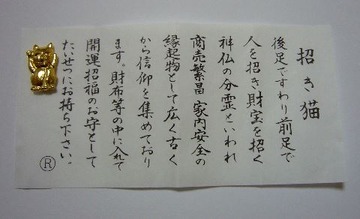 招き猫
後足ですわり前足で
人を招き財宝を招く
神仏の分霊といわれ
商売繁昌家内安全の
縁起物として広く古く
から信仰を集めており
ます。財布等の中に入れて
開運招福のお守として
たいせつにお持ち下さい。
Ⓡ